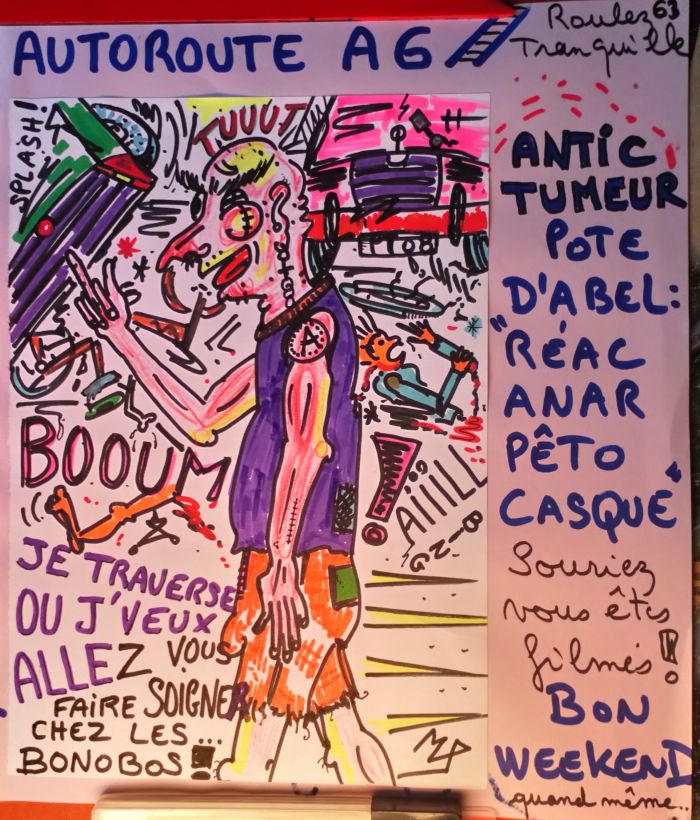 AUTOROUTE A6
Roulez
Tranquille
63
SPLASH!
TUUUT
A
BOOUM
AÏÏILL
BING
JE TRAVERSE
OU J'VEUX
ALLEZ VOUS
FAIRE SOIGNER
CHEZ LES...
BONOBOS!
ANTIC
TUMEUR
POTE
D'ABEL:
"RÉAC
ANAR
PÊTO
CASQUE"
Souriez
vous êtes
filmés!
BON
WEEKEND
(quand même..